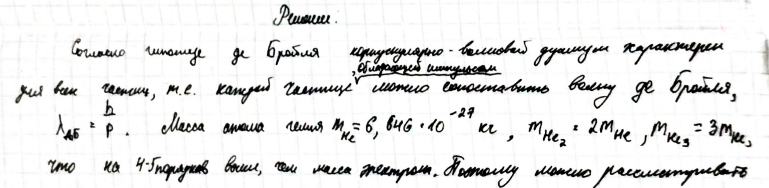 Решение.
Согласно гипотезе де Бройля корпускулярно-волновой дуализм характерен
для всех частиц, т.е. каждой частице, обладающей импульсом можно сопоставить волну де Бройля,
λ_дБ = h/p. Масса атома гелия m_He = 6,646·10^-27 кг, m_He2 = 2m_He, m_He3 = 3m_He,
что на 4-5 порядков выше, чем масса электрона. Поэтому можно рассматривать